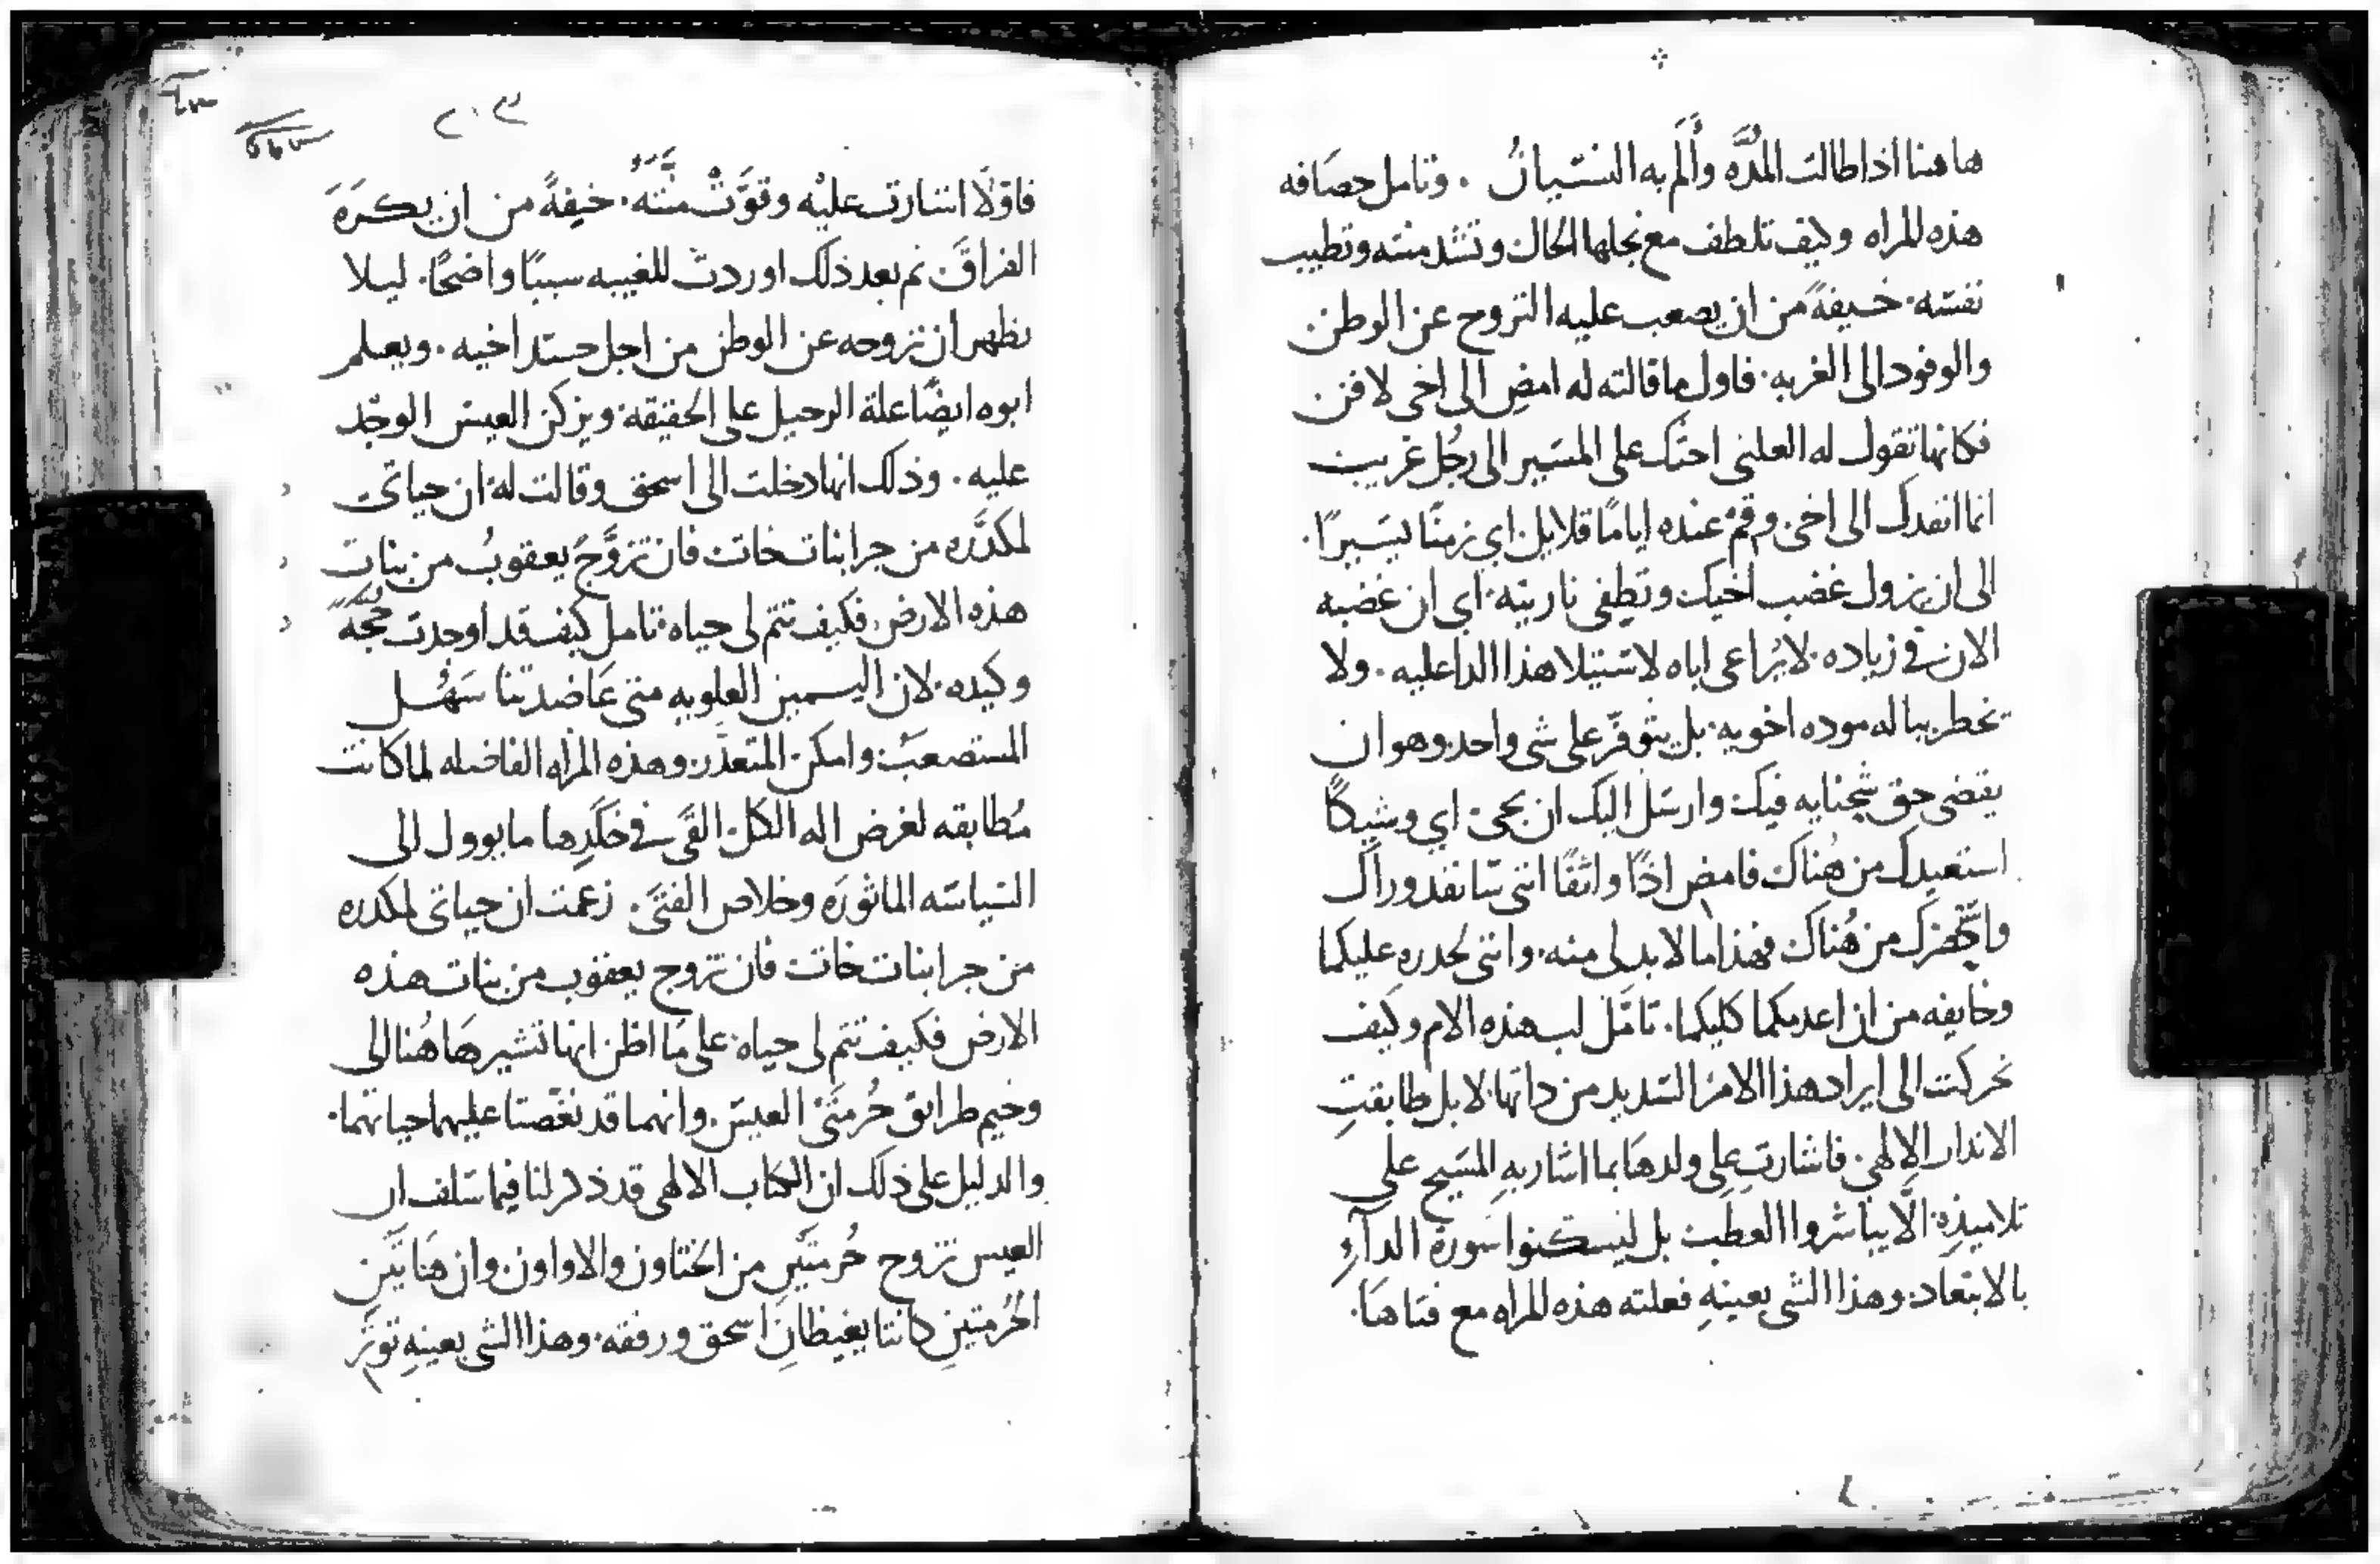 هاهنا اذا طالت المدَّه وأَلَم به النسيانُ . وتامل حصَافه
هذه المراه وكيف تلطف مع نجلها الحال وتشد منته وتطيب
نفسه. خيفةً من ان يصعب عليه النزوح عن الوطن
والوفود الى الغربه. فاول ما قالته له امضِ الى اخي لافن
فكانها تقول له العلني احثك على المسَير الى رجُل غريب
انما انفدك الى اخي. وقمْ عنده ايامًا قلايل. اي زمنًا يسَيرًا.
الى ان يزول غضب اخيك وتطفى ناريته. اي ان غضبه
الان في زياده. لا يُراعي اباه لاستيلا هذا الدا عليه. ولا
تخطر بباله موده اخويه. بل يتوفّر على شي واحد. وهو ان
يقضي حق شجنايه فيك. وارسَل اليك ان تجي. اي وشيكًا
استعيدك من هُناك فامضِ اذًا واثقًا انني سَانفد وراك
واجّهزك من هُناك فهذا ما لا بد لي منه. وانني لحدره عليكما
وخايفه من ان اعدمكما كليكما. تامّل لب هذه الام وكيف
تحركت الى ايراد هذا الامر السَديد من داتها. لا بل طابقتِ
الاندار الالهي. فاشارت على ولدهَا بما اشار بهِ المسَيح على
تلاميذهِ. الّا يباشروا العطب بل ليسكنوا سَورة الدآءِ
بالابتعاد. وهذا الشي بعينهِ فعلته هذه المراه مع فتاهَا.
٢٠٣
فاوّلًا اشارت عليْه وقوَّتْ منَّتَهُ. خيفةً من ان يكرَهَ
الفراقَ ثم بعد ذلك اوردتْ للغيبه سببًا واضحًا. ليلا
يظهر ان نزوحه عن الوطن من اجل حسَد اخيه. ويعلم
ابوه ايضًا علة الرحيل على الحقيقه. ويزكن العيس الوجْد
عليه. وذلك انها دخلت الى اسحق وقالت له. ان حياتي
لمكدَّره من جرا بنات خات. فان تزوَّجَ يعقوبُ من بنات
هذه الارض. فكيف تتم لي حياه. تامل كيف قد اوجدت حُجَّهً
وكيده. لان اليمين العلويه متى عَاضدتنا سَهُل
المستصعَب وامكن المتعذّر. وهذه المرأه الفاضله لما كانت
مُطابقه لغرض اله الكل. القَى في خَلَدِها ما يوول الى
السَياسَه الماثورَه وخلاص الفتَى. زعمت ان حياتي لمكدره
من جرا بنات خات فان تزوج يعقوب من بنات هذه
الارض فكيف تتم لي حياه. على مَا اظن انها تشير هَاهُنا الى
وخيم طرايق حُرمتَيْ العيسَ. وانهما قد نغّصتا عليهما حياتهما.
والدليل على ذلك ان الكتاب الالهي قد ذكر لنا فيما سَلف ان
العيس تزوج حُرمتَيْنِ من الختاون والاواون. وان هَاتَينِ
الحُرمتينِ كانتا يغيظانِ اسحق ورفقه. وهذا الشي بعينهِ توثَر